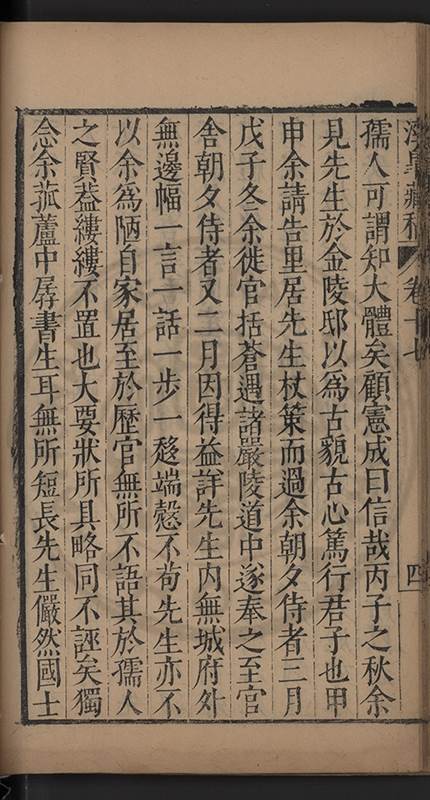 涇臯藏稿 卷十七 四
孺人可謂知大體矣顧憲成曰信哉丙子之秋余
見先生於金陵邸以為古貌古心篤行君子也甲
申余請告里居先生杖策而過余朝夕侍者三月
戊子冬余徙官括蒼遇諸嚴陵道中遂奉之至官
舍朝夕侍者又二月因得益詳先生內無城府外
無邊幅一言一話一步一趍端愨不苟先生亦不
以余為陋自家居至於歷官無所不語其於孺人
之賢葢縷縷不置也大要狀所具略同不誣矣獨
念余菰蘆中孱書生耳無所短長先生儼然國士